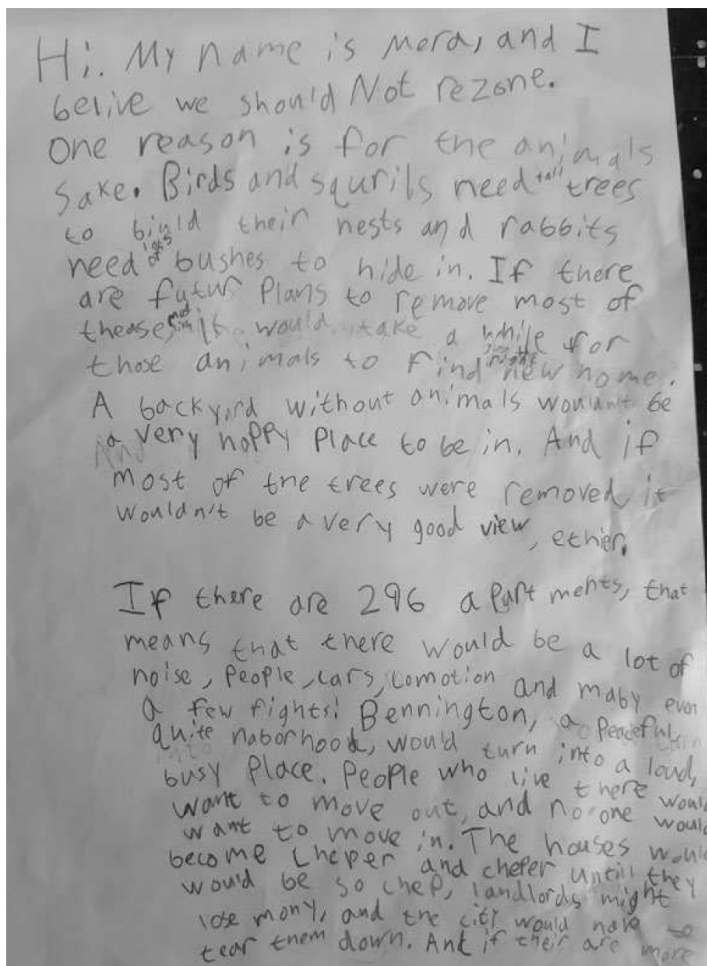 Hi. My name is Mora, and I
belive we should Not rezone.
One reason is for the animals
sake. Birds and squrils need tall trees
to biuld their nests and rabbits
need lots of bushes to hide in. If there
are futur Plans to remove most of
thease, it would take a while for
those animals to find new home.
A backyard without animals wouldn't be
a very happy Place to be in. And if
most of the trees were removed, it
wouldn't be a very good view, ethier.
If there are 296 apartments, that
means that there would be a lot of
noise, People, cars, comotion and maby even
a few fights! Bennington, a Peaceful,
quite naborhood, would turn into a loud,
busy Place. People who live there would
want to move out, and no one would
want to move in. The houses would
become cheper and cheper untill they
would be so chep, landlords might
lose mony, and the city would have to
tear them down. And if their are more